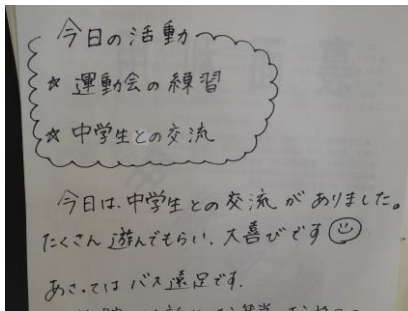 今日の活動
☆ 運動会の練習
☆ 中学生との交流
今日は、中学生との交流がありました。
たくさん遊んでもらい、大喜びです☺
あさってはバス遠足です。